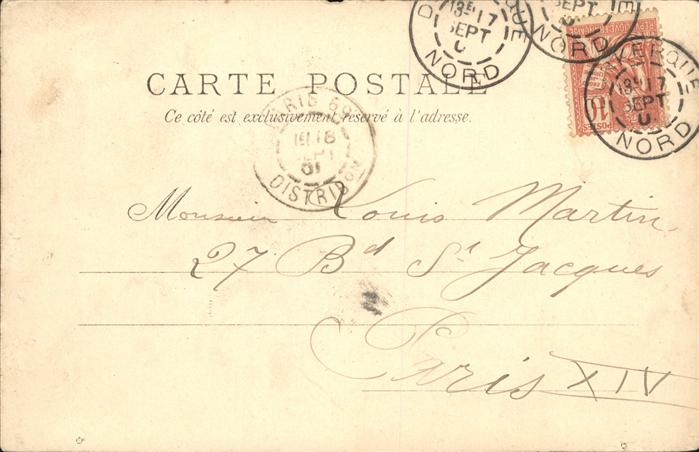 DUNKERQUE
13E 17
SEPT
NORD
SEPT
NORD
DUNKERQUE
13E 17
SEPT
NORD
10
POSTES
CARTE POSTALE
Ce côté est exclusivement réservé à l'adresse.
PARIS
18
SEPT
01
DISTRIBON
Monsieur Louis Martin
27 Bd St Jacques
Paris XIV